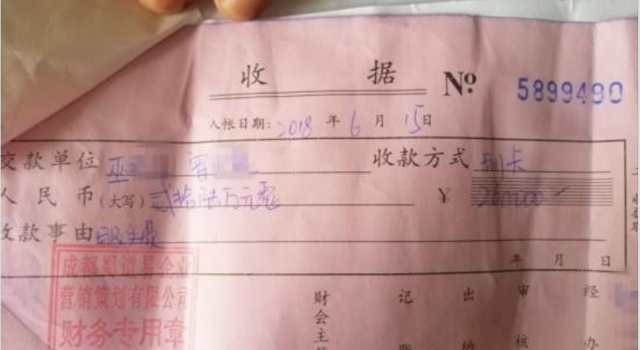 收 据 № 5899490
入帐日期：2018 年 6 月 15 日
交款单位 巫 收款方式 刷卡
人民币(大写) 贰拾陆万元 ¥ 260000
收款事由 服务费
年 月 日
成都蜀道易企业
营销策划有限公司
财务专用章
财会主 记 出 审核 经办